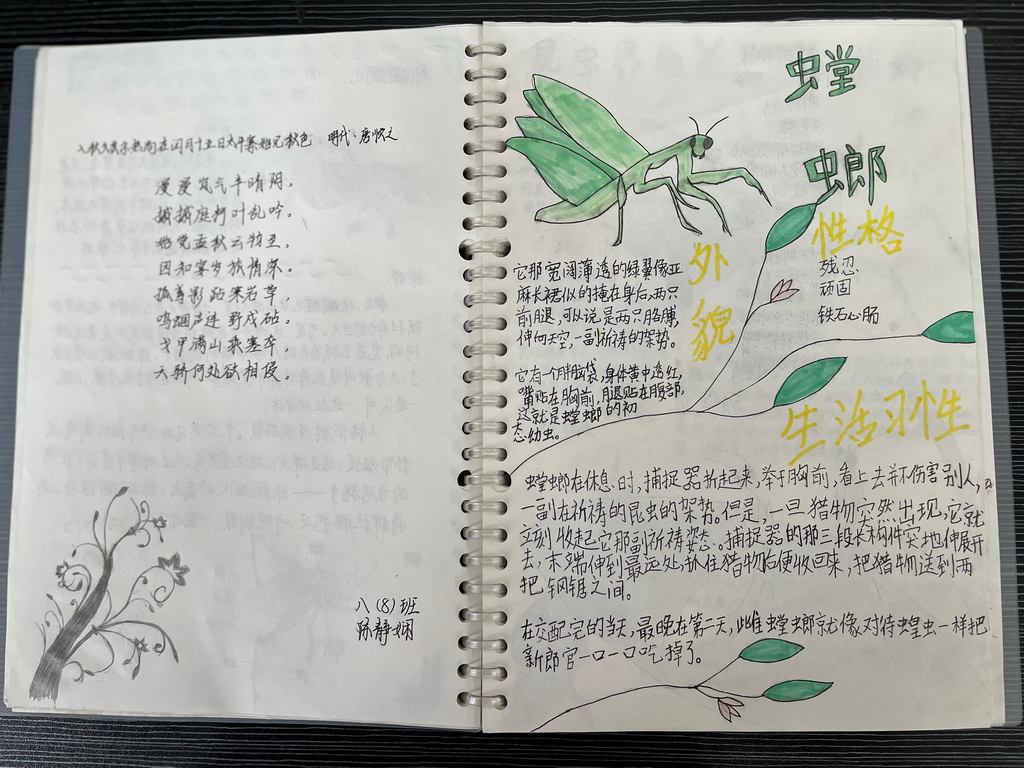 明代·唐
漫漫岚气半晴阴，
槭槭庭柯叶乱吟。
始觉孟秋云物至，
因知客岁旅情深。
孤尊影距寒岩草，
鸣烟声连野戍砧。
戈甲满山乘塞卒，
天骄何处欲相侵
八(8)班
陈静娴
螳
螂
性格
残忍
顽固
铁石心肠
外
貌
它那宽阔薄透的绿翼像亚
麻长裙似的掩在身后。两只
前腿，可以说是两只胳膊，
伸向天空，一副祈祷的架势。
它有一个月牙脑袋，身体黄中透红，
嘴贴在胸前，腿贴在腹部，
这就是螳螂的初
态幼虫。
生活习性
螳螂在休息时，捕捉器折起来，举于胸前，看上去并不伤害别人，
一副在祈祷的昆虫的架势。但是，一旦猎物突然出现，它就
立刻收起它那副祈祷姿态。捕捉器的那三段长构件突地伸展开
去，末端伸到最远处，抓住猎物后便收回来，把猎物送到两
把钢锯之间。
在交配完的当天，最晚在第二天，此雌螳螂就像对待蝗虫一样把
新郎官一口一口吃掉了。